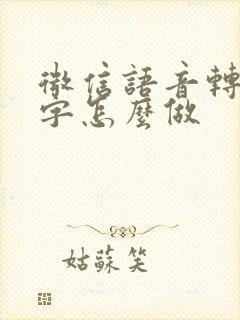 微信語音轉
字怎麼做
姑蘇笑